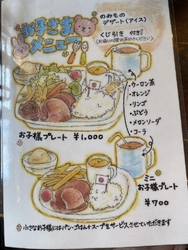 お子さま
メニュー
のみもの
デザート(アイス)
くじ引き 付き!!
・ウーロン茶
・オレンジ
・リンゴ
・ぶどう
・メロンソーダ
・コーラ
お子様プレート ¥1,000
ミニ
お子様プレート
¥700
※小さなお子様にはパン、ごはん、スープをサービスさせていただきます